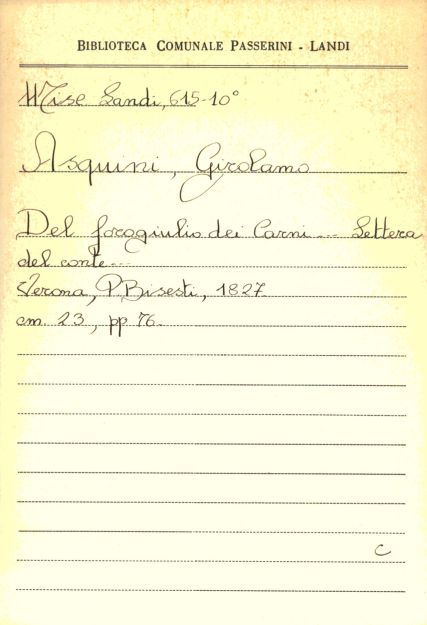 BIBLIOTECA COMUNALE PASSERINI - LANDI
Misc Landi, 615-10°
Asquini, Girolamo
Del forogiulio dei Carni --- Lettera
del conte ---
Verona, P. Bisesti, 1827
cm. 23, pp 76.
C